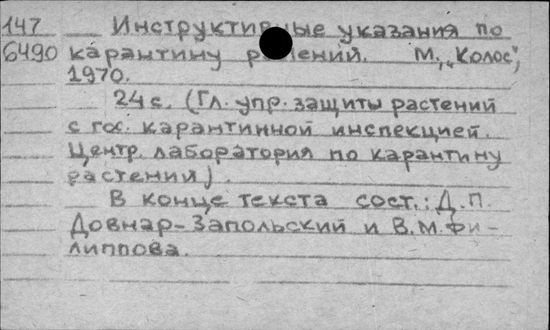 147 Инструктивные указания по
6490 карантину растений. М., „Колос",
1970.
24 с. (Гл. упр. защиты растений
с гос. карантинной инспекцией.
Центр. лаборатория по карантину
растений).
В конце текста сост.: Д.П.
Довнар-Запольский и В.М. Фи-
липпова.